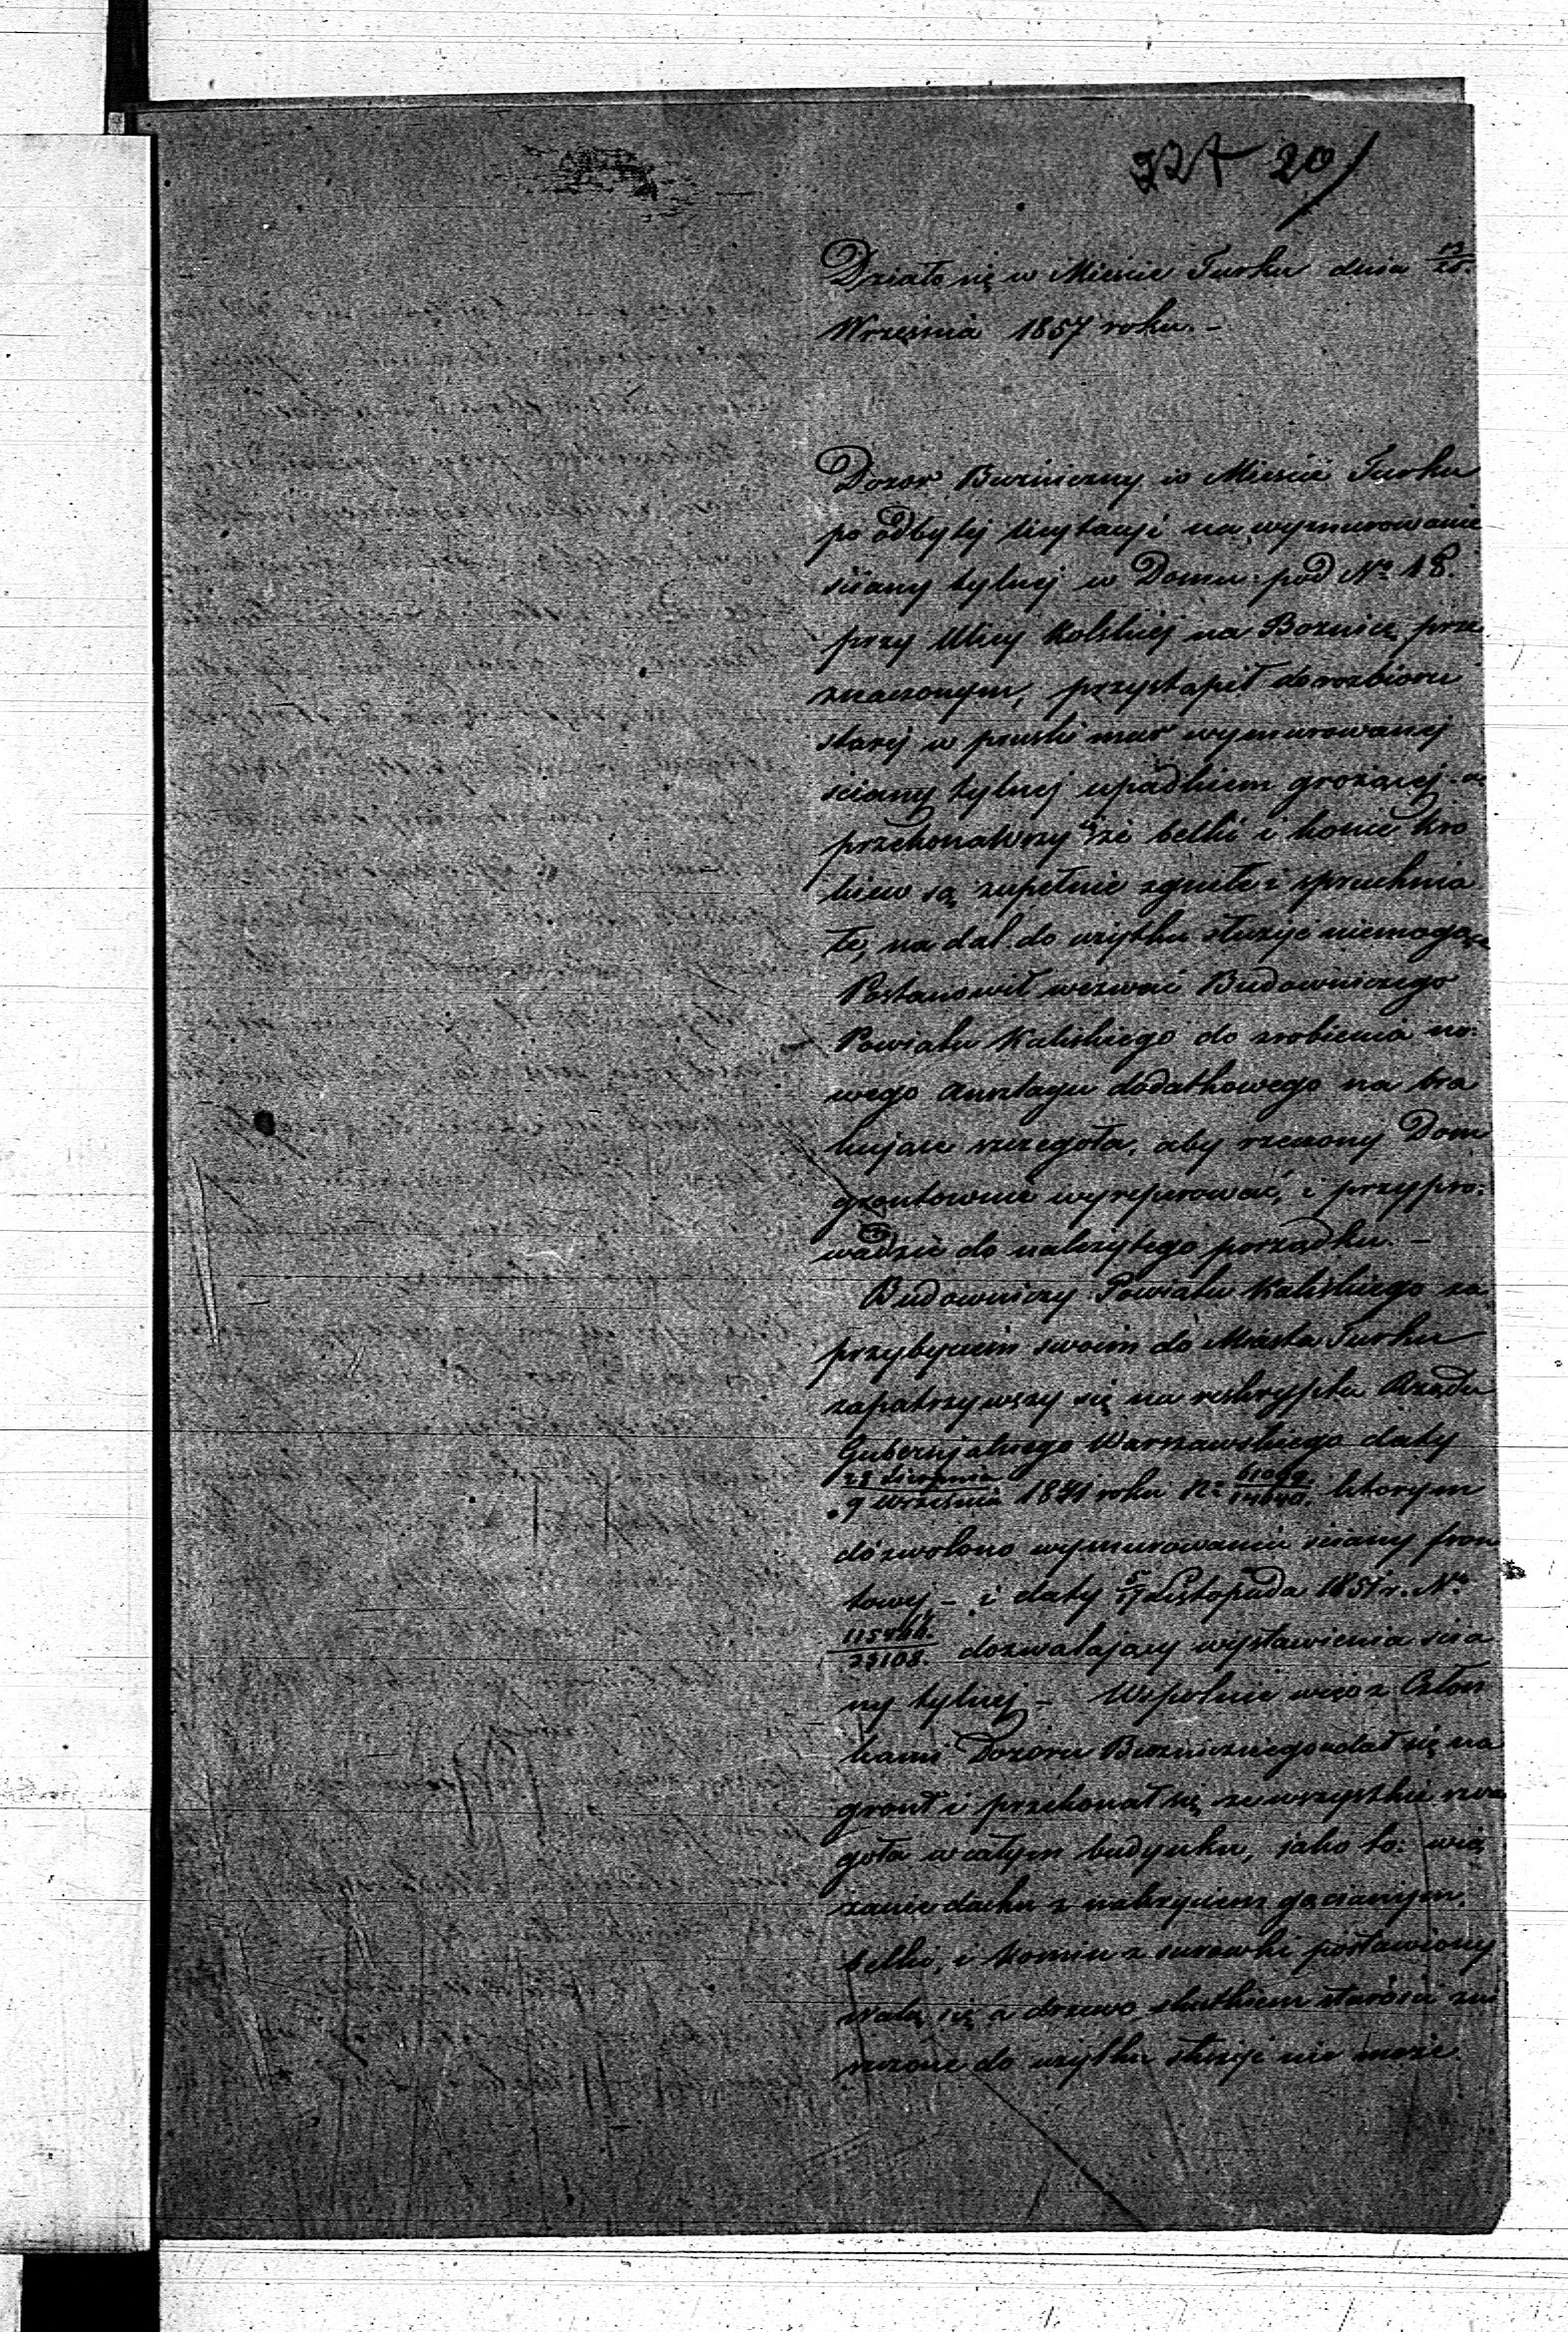 20
Działo się w Mieście Turku dnia 13/25.
Września 1857 roku. –
Dozor Buźniczny w Mieście Turku
po odbytej licytacyi na wymurowanie
ściany tylnej w Domu pod No 18.
przy Ulicy Kolskiej na Boznicę prze
znaczonym, przystąpił do rozbioru
starej w pruski mur wymurowanej
ściany tylnej upadkiem grożącej. a
przekonawszy że belki i końce kro
kiew są zupełnie zgniłe i spruchnia
łe, na dal do użytku służyć niemogące
Postanowił wezwać Budowniczego
Powiatu Kaliskiego do zrobienia no:
wego Anszlagu dodatkowego na bra
kujące szczegoła, aby rzeczony Dom
grontownie wyreperować, i przypro:
wadzić do należytego porządku. –
Budowniczy Powiatu Kaliskiego za
przybyciem swoim do Miasta Turku
zapatrzywszy się na reskrypta Rządu
Gubernjalnego Warszawskiego daty
28 Sierpnia/9 Września 1841 roku No którym
dozwolono wymurowania ściany fron
towej – i daty 5/17 Listopada 1851 r. No
23108. dozwalający wystawienia ścia
ny tylnej – Wspolnie więc z Człon
kami Dozoru Buzniczniego udał się na
gront i przekonał się że wszystkie szcze
goła w całym budynku, jako to: wią
zanie dachu z nakryciem gącianym.
belki, i Komin z surowki postawiony
walą się a drzewo skutkiem starości zni
szczone do użytku służyć nie może.